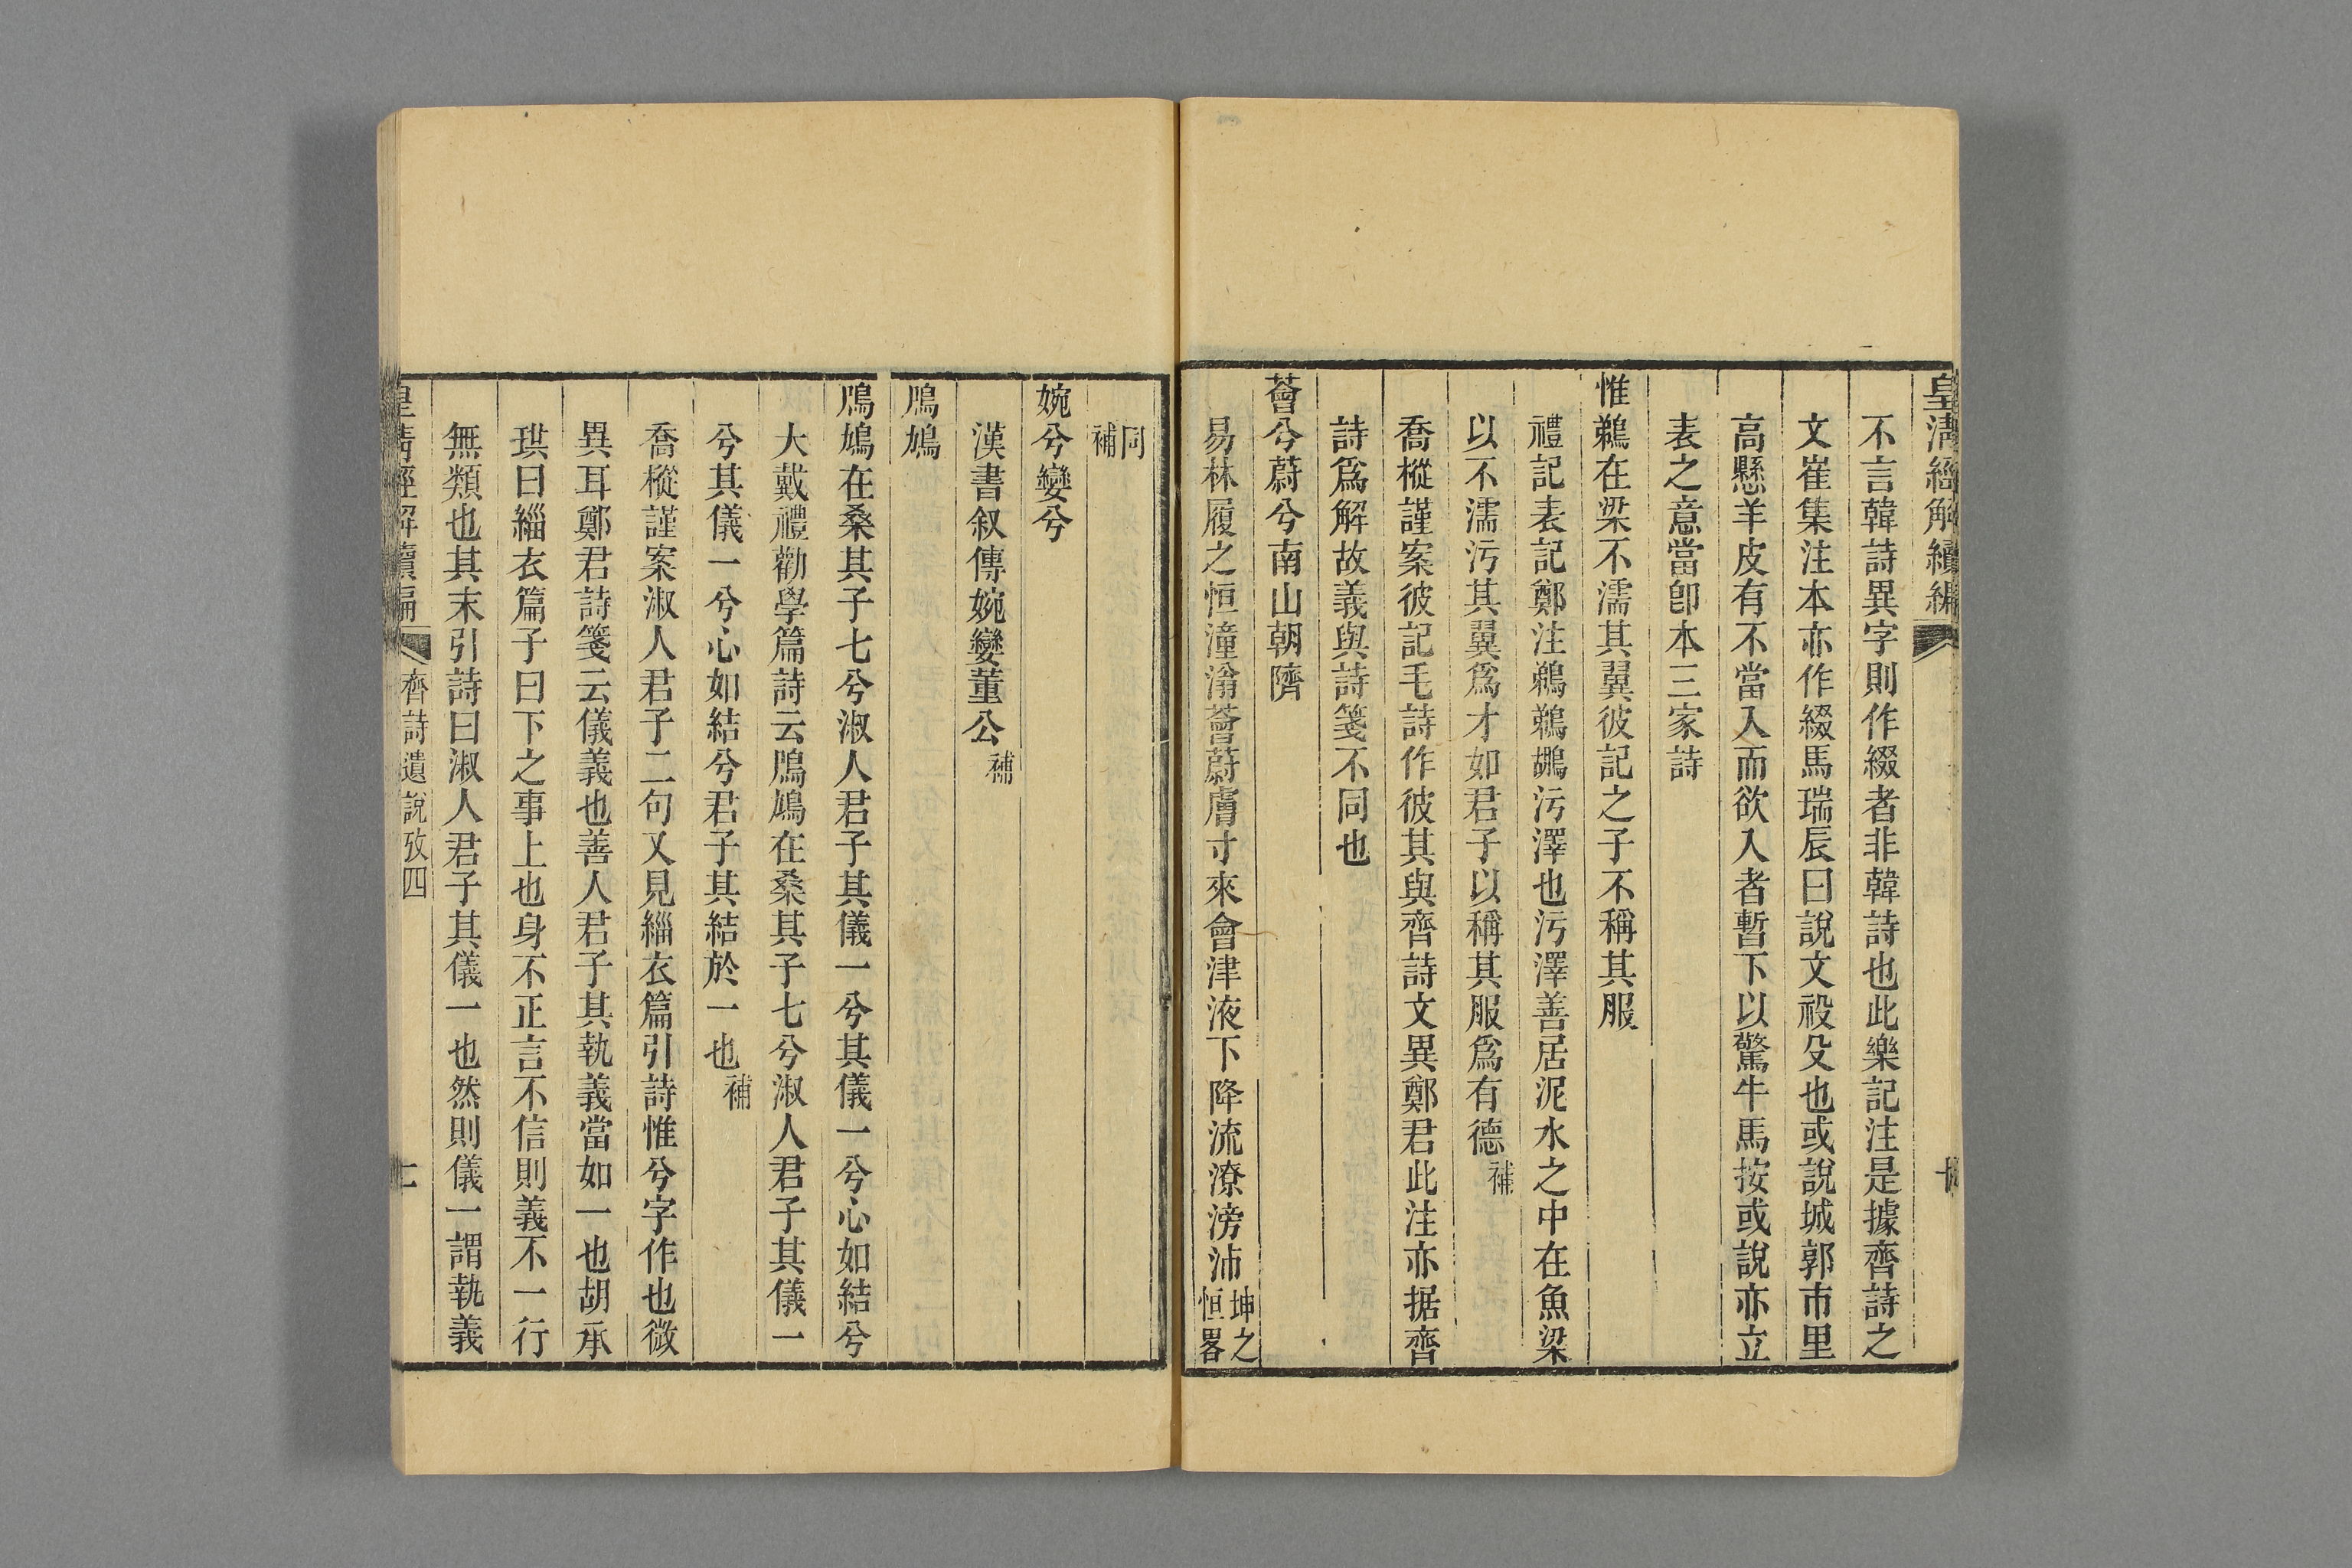 皇淸經解續編
不言韓詩異字則作綴者非韓詩也此樂記注是據齊詩之
文崔集注本亦作綴馬瑞辰曰說文祋殳也或說城郭市里
高懸羊皮有不當入而欲入者暫下以驚牛馬按或說亦立
表之意當卽本三家詩
惟鵜在梁不濡其翼彼記之子不稱其服
禮記表記鄭注鵜鵜鶘污澤也污澤善居泥水之中在魚梁
以不濡污其翼爲才如君子以稱其服爲有德補
喬樅謹案彼記毛詩作彼其與齊詩文異鄭君此注亦据齊
詩爲解故義與詩箋不同也
薈兮蔚兮南山朝隮
易林履之恒潼滃薈蔚膚寸來會津液下降流潦滂沛坤之
恒畧
同
補
婉兮孌兮
漢書叙傳婉孌董公補
鳲鳩
鳲鳩在桑其子七兮淑人君子其儀一兮其儀一兮心如結兮
大戴禮勸學篇詩云鳲鳩在桑其子七兮淑人君子其儀一
兮其儀一兮心如結兮君子其結於一也補
喬樅謹案淑人君子二句又見緇衣篇引詩惟兮字作也微
異耳鄭君詩箋云儀義也善人君子其執義當如一也胡承
珙曰緇衣篇子曰下之事上也身不正言不信則義不一行
無類也其末引詩曰淑人君子其儀一也然則儀一謂執義
皇淸經解續編
齊詩遺說攷四